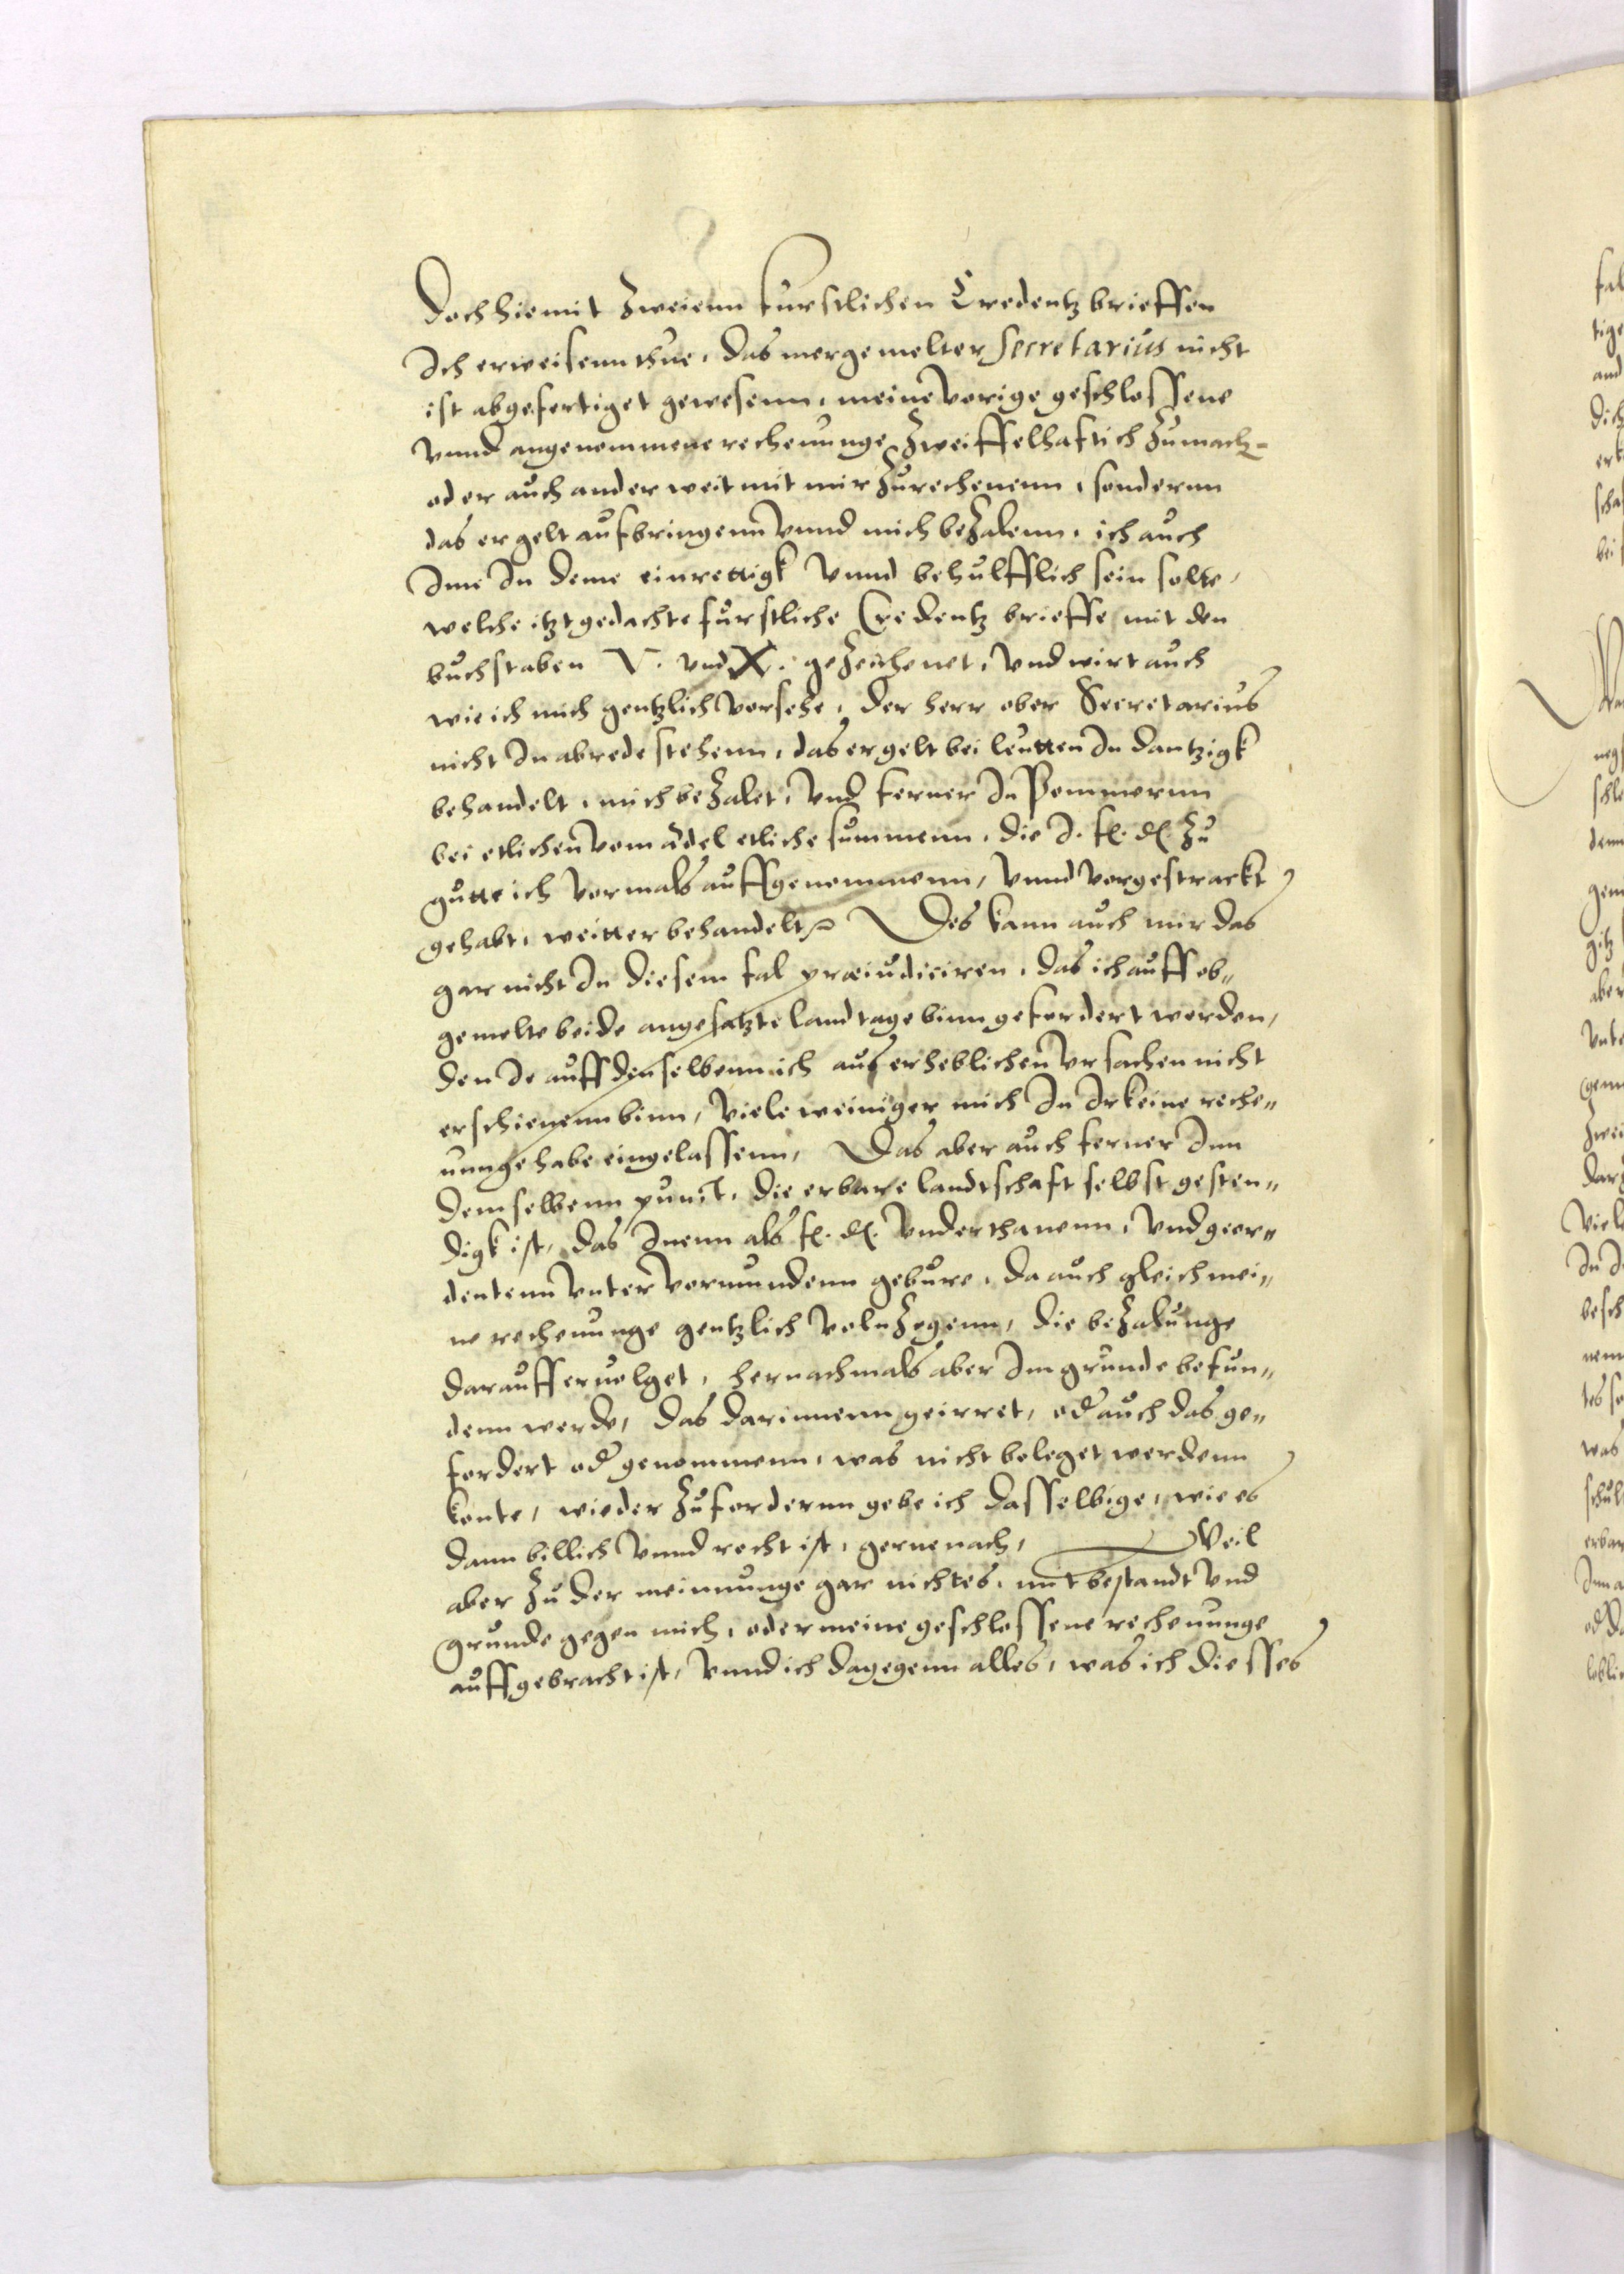 Doch hiemit Zweienn furstlichen Credentz brieffen
Ich erweisenn thue, das mergemelter Secretarius nicht
ist abgefertiget gewesenn, meine vorige geschlossene
vnnd angenommene rechenunge Zweiffelhaftich Zumach-
oder auch ander weit mit mir Zurechenenn, sondernn
das er gelt aufbringenn vnnd mich beZalenn, ich auch
Ime In deme einrettigk vnnd behulfflich sein solte,
welche itzt gedachte furstliche Credentz brieffe mit den
buchstaben V. vnd X. geZeichenet, vnd wirt auch
wie ich mich gentzlich vorsehe, der herr ober Secretarius
nicht In abrede stehenn, das er gelt bei leutten In Dantzigk
behandelt, mich beZalet, vnd ferner In Pommernn
bei etlichen vom adel etliche summenn, die I. f. d. Zu
gutte ich vormals auffgenommenn, vnnd vorgestrackt
gehabt, weitter behandelt. Des kann auch mir das
gar nicht In diesem fal præiudiciren, das ich auff ob„
gemelte beide angesatzte landtage binn gefordert worden,
den Je auff denselbenn ich aus erheblichen vrsachen nicht
erschienenn binn, viele weiniger mich In Irkeine reche„
nunge habe eingelassenn, Das aber auch ferner Inn
demselbenn punct, die erbare landtschaft selbst gesten„
digk ist, das Inenn als f. d. vnderthanenn, vnd geor„
dentenn vnter vormundenn gebure, da auch gleich mei„
ne rechenunge gentzlich volnZogenn, die beZalunge
darauff eruolget, hernachmals aber Im grunde befun„
denn werde, das darinnenn geirret, od auch das ge„
fordert od genommenn, was nicht beleget werdenn
konte, wieder Zufordernn gebe ich dasselbige, wie es
dann billich vnnd recht ist, gerne nach, Weil
aber Zu der meinnunge gar nichtes, mit bestandt vnd
grunde gegen mich, oder meine geschlossene rechenunge
auffgebracht ist, vnnd ich dagegenn alles, was ich diesses